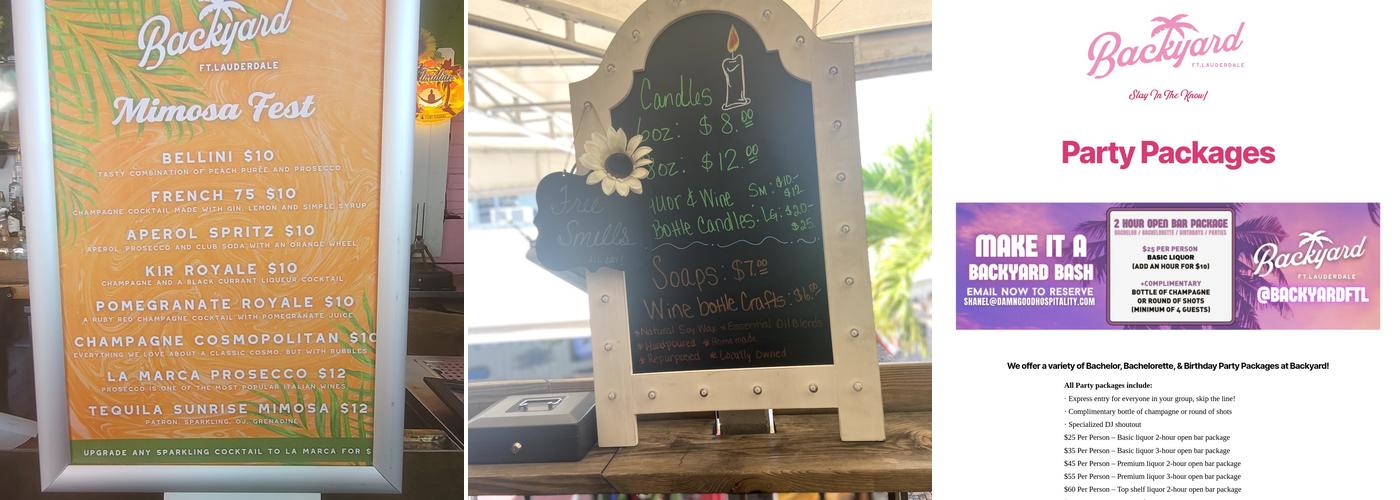 Backyard
FT.LAUDERDALE
Mimosa Fest
BELLINI $10
TASTY COMBINATION OF PEACH PURÉE AND PROSECCO
FRENCH 75 $10
CHAMPAGNE COCKTAIL MADE WITH GIN, LEMON AND SIMPLE SYRUP
APEROL SPRITZ $10
APEROL, PROSECCO AND CLUB SODA WITH AN ORANGE WHEEL
KIR ROYALE $10
CHAMPAGNE AND A BLACK CURRANT LIQUEUR COCKTAIL
POMEGRANATE ROYALE $10
A RUBY RED CHAMPAGNE COCKTAIL WITH POMEGRANATE JUICE
CHAMPAGNE COSMOPOLITAN $10
EVERYTHING WE LOVE ABOUT A CLASSIC COSMO, BUT WITH BUBBLES
LA MARCA PROSECCO $12
PROSECCO IS ONE OF THE MOST POPULAR ITALIAN WINES
TEQUILA SUNRISE MIMOSA $12
PATRON, SPARKLING, OJ, GRENADINE
UPGRADE ANY SPARKLING COCKTAIL TO LA MARCA FOR $
Candles
6oz: $8.00
8oz: $12.00
Wine Sm: $10-
$12
Bottle Candles: Lg: $20-
$25
Free
Smells
Soaps: $7.00
Wine bottle Crafts: $16.00
*Natural Soy Wax *Essential Oil Blends
*Handpoured *Homemade
*Repurposed *Locally Owned
Backyard
FT.LAUDERDALE
Stay In The Know!
Party Packages
MAKE IT A
BACKYARD BASH
EMAIL NOW TO RESERVE
SHANEL@DAMNGOODHOSPITALITY.COM
2 HOUR OPEN BAR PACKAGE
BACHELOR / BACHELORETTE / BIRTHDAYS / PARTIES
$25 PER PERSON
BASIC LIQUOR
(ADD AN HOUR FOR $10)
+COMPLIMENTARY
BOTTLE OF CHAMPAGNE
OR ROUND OF SHOTS
(MINIMUM OF 4 GUESTS)
Backyard
FT.LAUDERDALE
@BACKYARDFTL
We offer a variety of Bachelor, Bachelorette, & Birthday Party Packages at Backyard!
All Party packages include:
· Express entry for everyone in your group, skip the line!
· Complimentary bottle of champagne or round of shots
· Specialized DJ shoutout
$25 Per Person – Basic liquor 2-hour open bar package
$35 Per Person – Basic liquor 3-hour open bar package
$45 Per Person – Premium liquor 2-hour open bar package
$55 Per Person – Premium liquor 3-hour open bar package
$60 Per Person – Top shelf liquor 2-hour open bar package